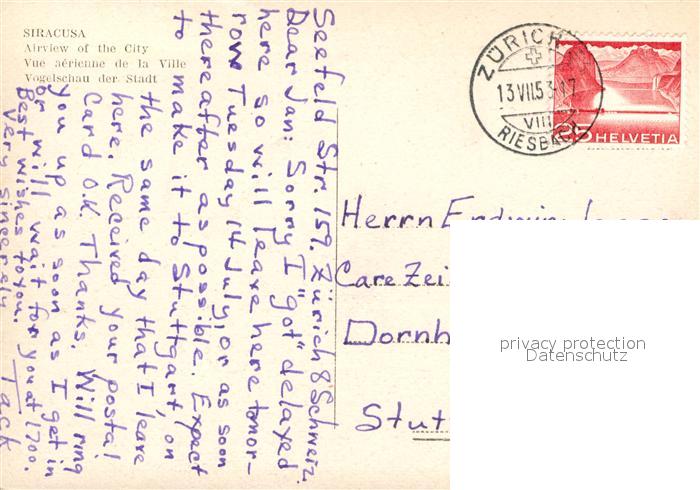 SIRACUSA
Airview of the City
Vue aérienne de la Ville
Vogelschau der Stadt
Seefeld Str. 159. Zürich 8 Schweiz.
Dear Jan: Sorry I "got" delayed
here so will leave here tomor-
row Tuesday 14 July, or as soon
thereafter as possible. Expect
to make it to Stuttgart, on
the same day that I leave
here. Received your postal
Card O.K. Thanks. Will ring
you up as soon as I get in
or will wait for you at 1700.
Best wishes to you.
Very sincerely Jack
ZÜRICH
13.VII.53-17
VIII
RIESBACH
HELVETIA
Herrn Erdwin
Care Zei
Dornh
Stut
privacy protection
Datenschutz